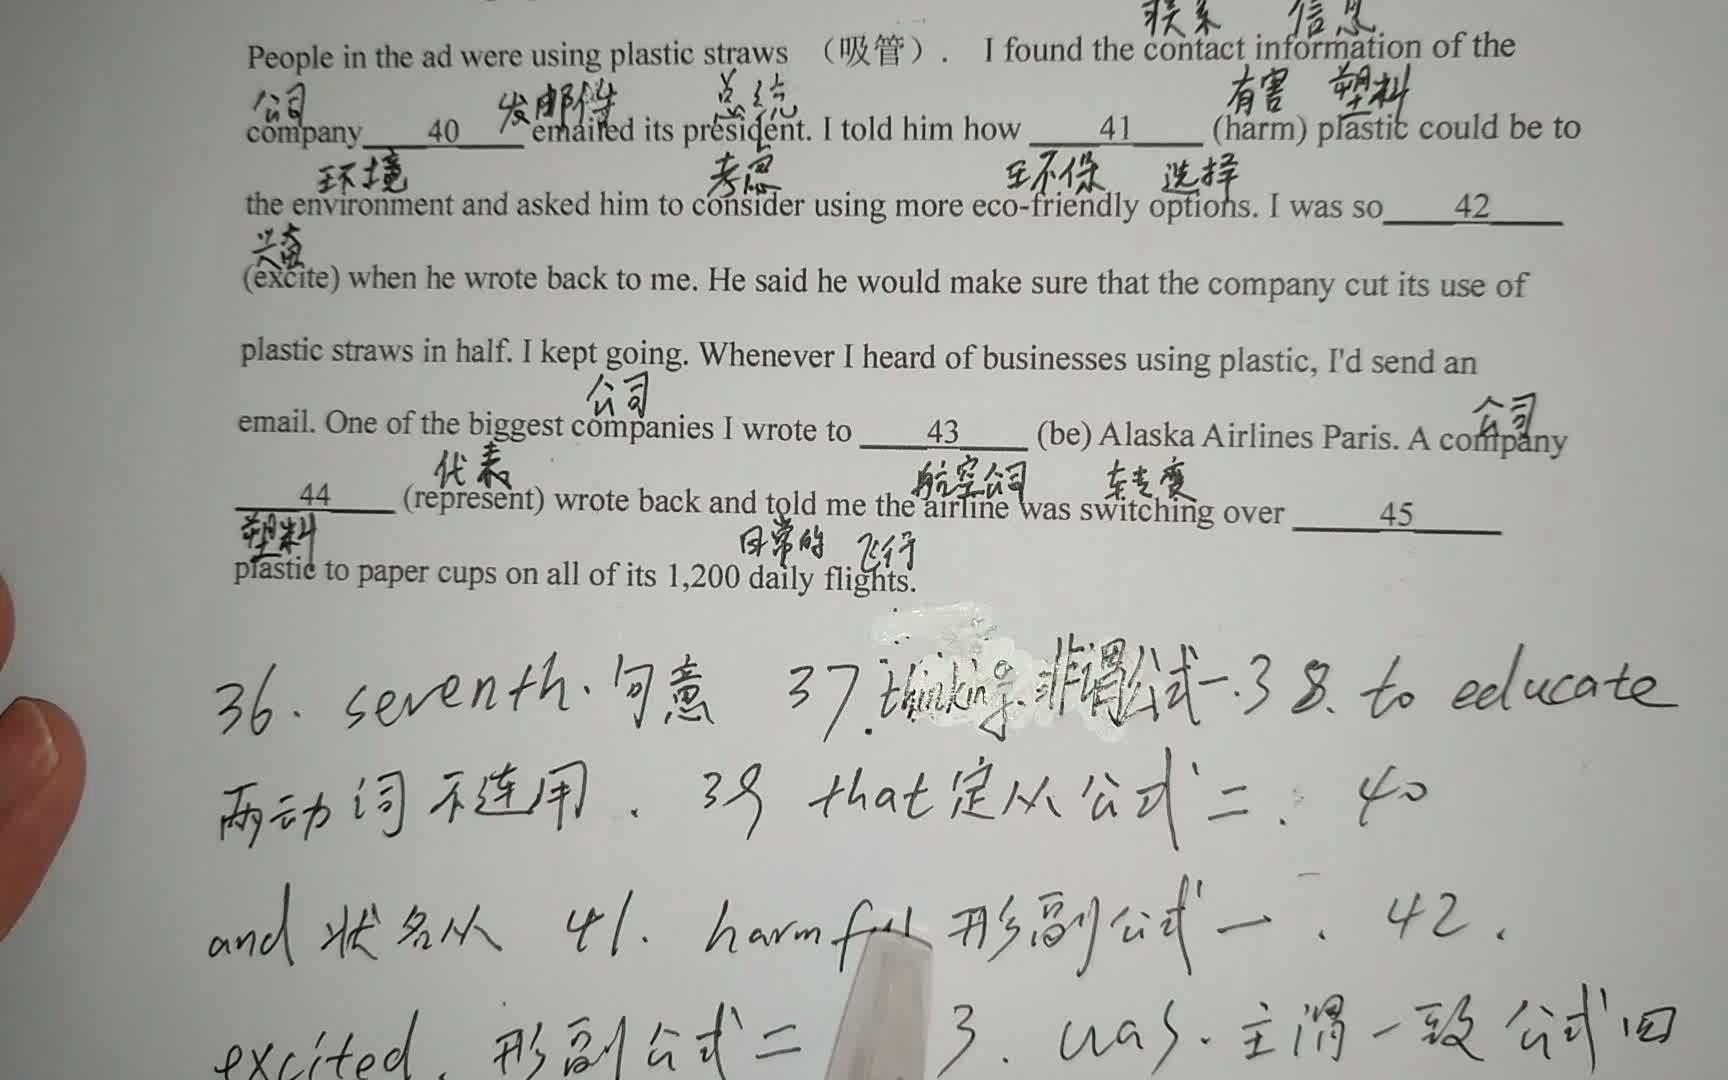 联系 信息
People in the ad were using plastic straws （吸管）. I found the contact information of the
公司 发邮件 总统 有害 塑料
company 40 emailed its president. I told him how 41 (harm) plastic could be to
环境 考虑 环保 选择
the environment and asked him to consider using more eco-friendly options. I was so 42
兴奋
(excite) when he wrote back to me. He said he would make sure that the company cut its use of
plastic straws in half. I kept going. Whenever I heard of businesses using plastic, I'd send an
公司 公司
email. One of the biggest companies I wrote to 43 (be) Alaska Airlines Paris. A company
代表 航空公司 转变
44 (represent) wrote back and told me the airline was switching over 45
塑料 日常的 飞行
plastic to paper cups on all of its 1,200 daily flights.
36. seventh. 句意 37. thinking. 非谓公式一. 38. to educate
两动词不连用. 39 that 定从公式二. 40
and 状名从 41. harmful 形副公式一. 42.
excited. 形副公式二 3. was. 主谓一致公式四